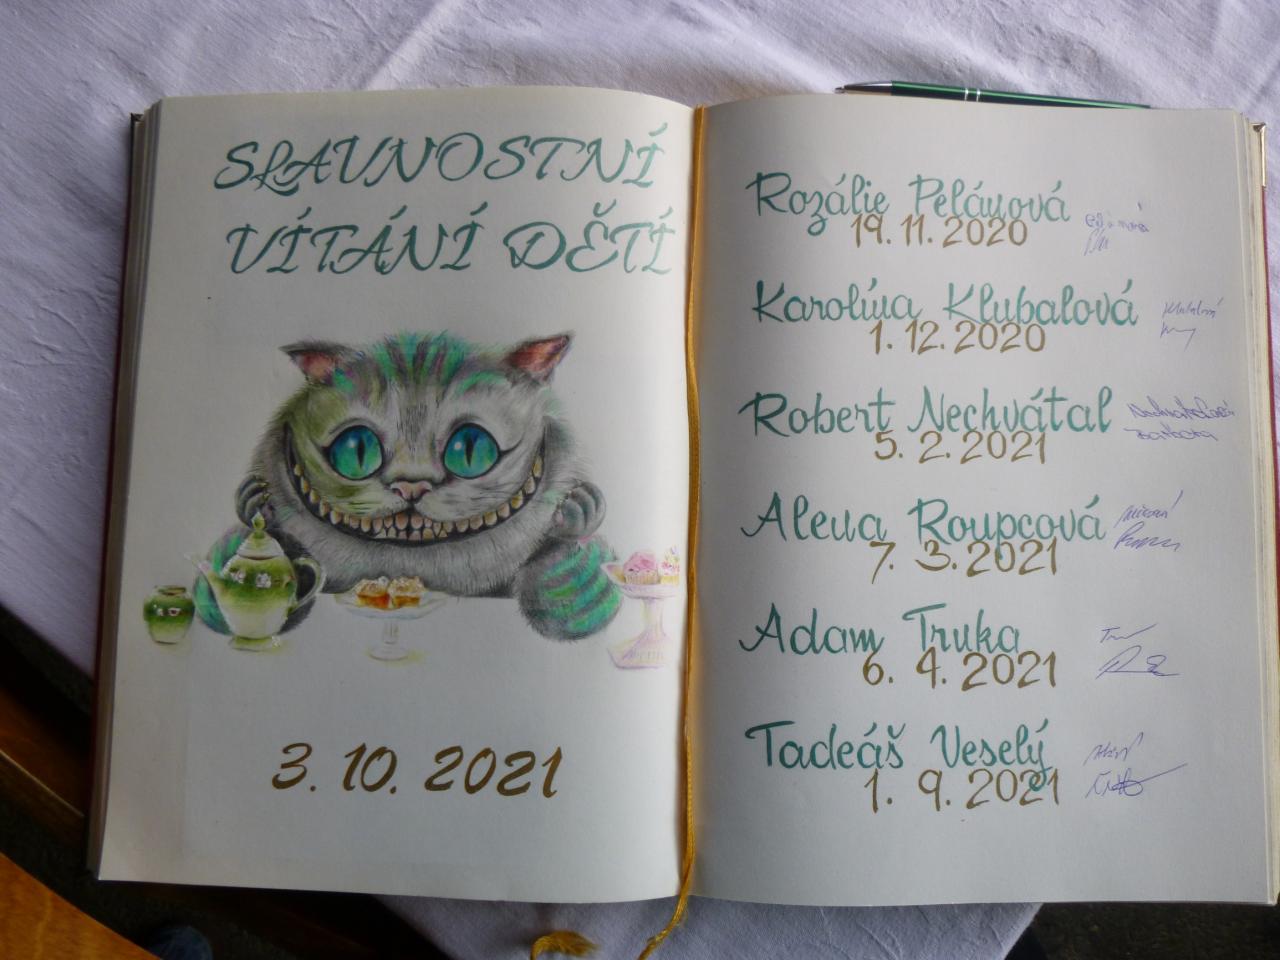 SLAVNOSTNÍ
VÍTÁNÍ DĚTÍ
3. 10. 2021
Rozálie Pelánová
19. 11. 2020
Karolína Klubalová
1. 12. 2020
Robert Nechvátal
5. 2. 2021
Alena Roupcová
7. 3. 2021
Adam Trnka
6. 4. 2021
Tadeáš Veselý
1. 9. 2021